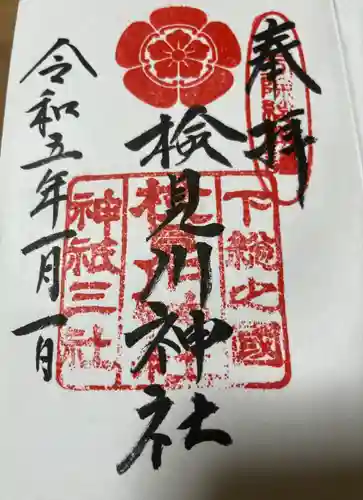 奉拝
検見川神社
令和五年一月一日
下総之國
神祇三社